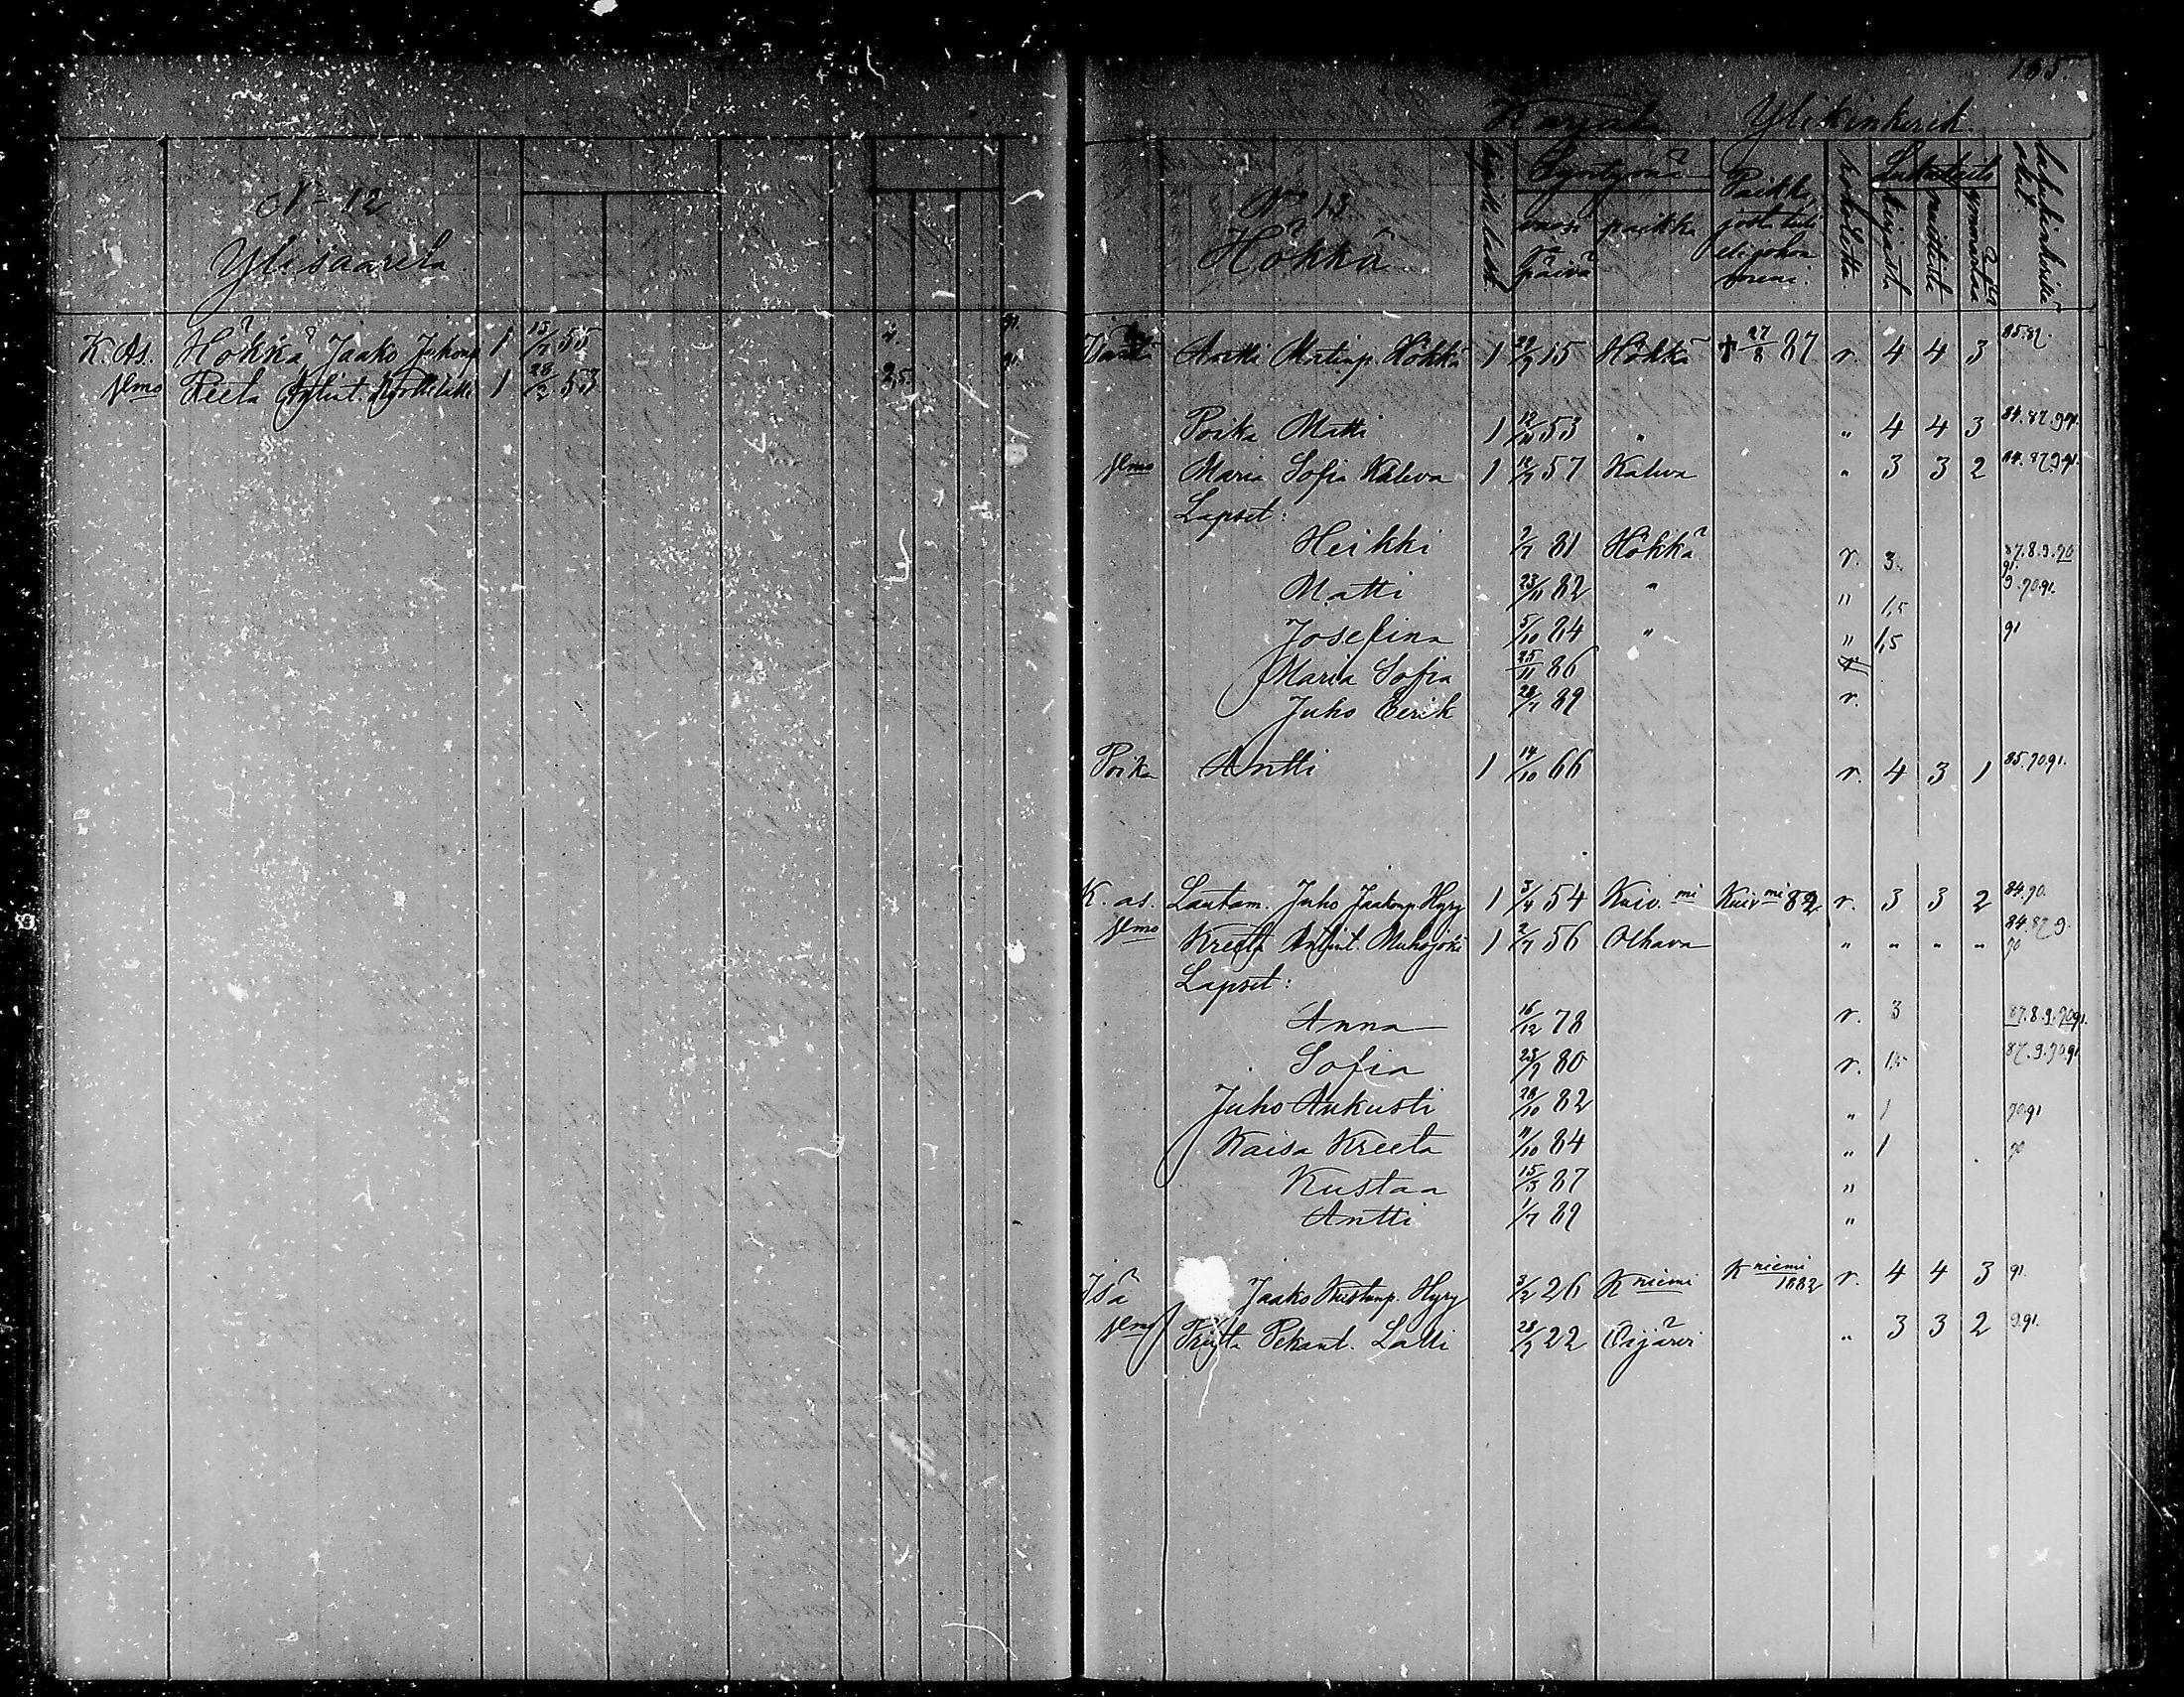 N:o 12
Ylisaarela
K. As. Hökkä Jaako Juhonp. 1 15/7 55 4. 91.
Vmo Reeta 1 28/2 53 2,5. 91
155.
Karjala Ylikinkerit.
N:o 13
Hökkä
Syntymä
vuosi ja päivä paikka
Paikka, josta tuli eli johon meni.
rokotettu.
Lukutaito
kirjasta
muistista
ymmärtää
Antti Matinp. Hökkä 1 22/9 15 Hökkä † 27/8 87 r. 4 4 3 85.87.
Poika Matti 1 12/10 53 " " 4 4 3 84.87.9.91.
Vmo Maria Sofia Kaleva 1 12/7 57 Kaleva " 3 3 2 84.87.9.91.
Lapset:
Heikki 2/7 81 Hökkä r. 3. 87.8.9.90 91.
Matti 23/11 82 " " 1,5 9.90.91.
Josefina 5/10 84 " " 1,5 91
Maria Sofia 25/11 86
Juho Eerik 28/7 89 r.
Poika Antti 1 14/10 66 r. 4 3 1 85.90.91.
K. as. Lautam. Juho Jaakonp. Hyry 1 3/4 54 Kuiv.mi Kuivmi 82 r. 3 3 2 84.90.
Vmo Kreeta Antint. Muhojoki 1 2/7 56 Olhava " " " " 84.87.9. 90
Lapset:
Anna 16/12 78 r. 3 87.8.9.90.91.
Sofia 23/9 80 r. 1,5 87.9.90.91
Juho Aukusti 28/10 82 " 1 90.91
Kaisa Kreeta 11/10 84 " 1 90
Kustaa 15/5 87 "
Antti 1/7 89 "
Isä Jaako Kustanp. Hyry 3/2 26 Kniemi Kniemi 1882 r. 4 4 3 91.
Vmo Pekant. Lalli 28/9 22 Oijärvi " 3 3 2 9.91.